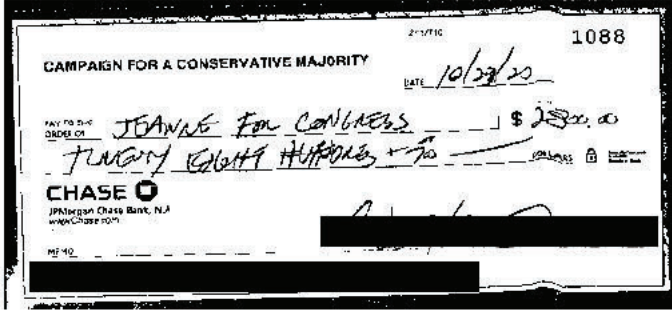 1088
CAMPAIGN FOR A CONSERVATIVE MAJORITY
DATE 10/23/20
PAY TO THE
ORDER OF JEANNE FOR CONGRESS $ 2800.00
TWENTY EIGHT HUNDRED + DOLLARS
CHASE
JPMorgan Chase Bank, N.A.
www.Chase.com
MEMO